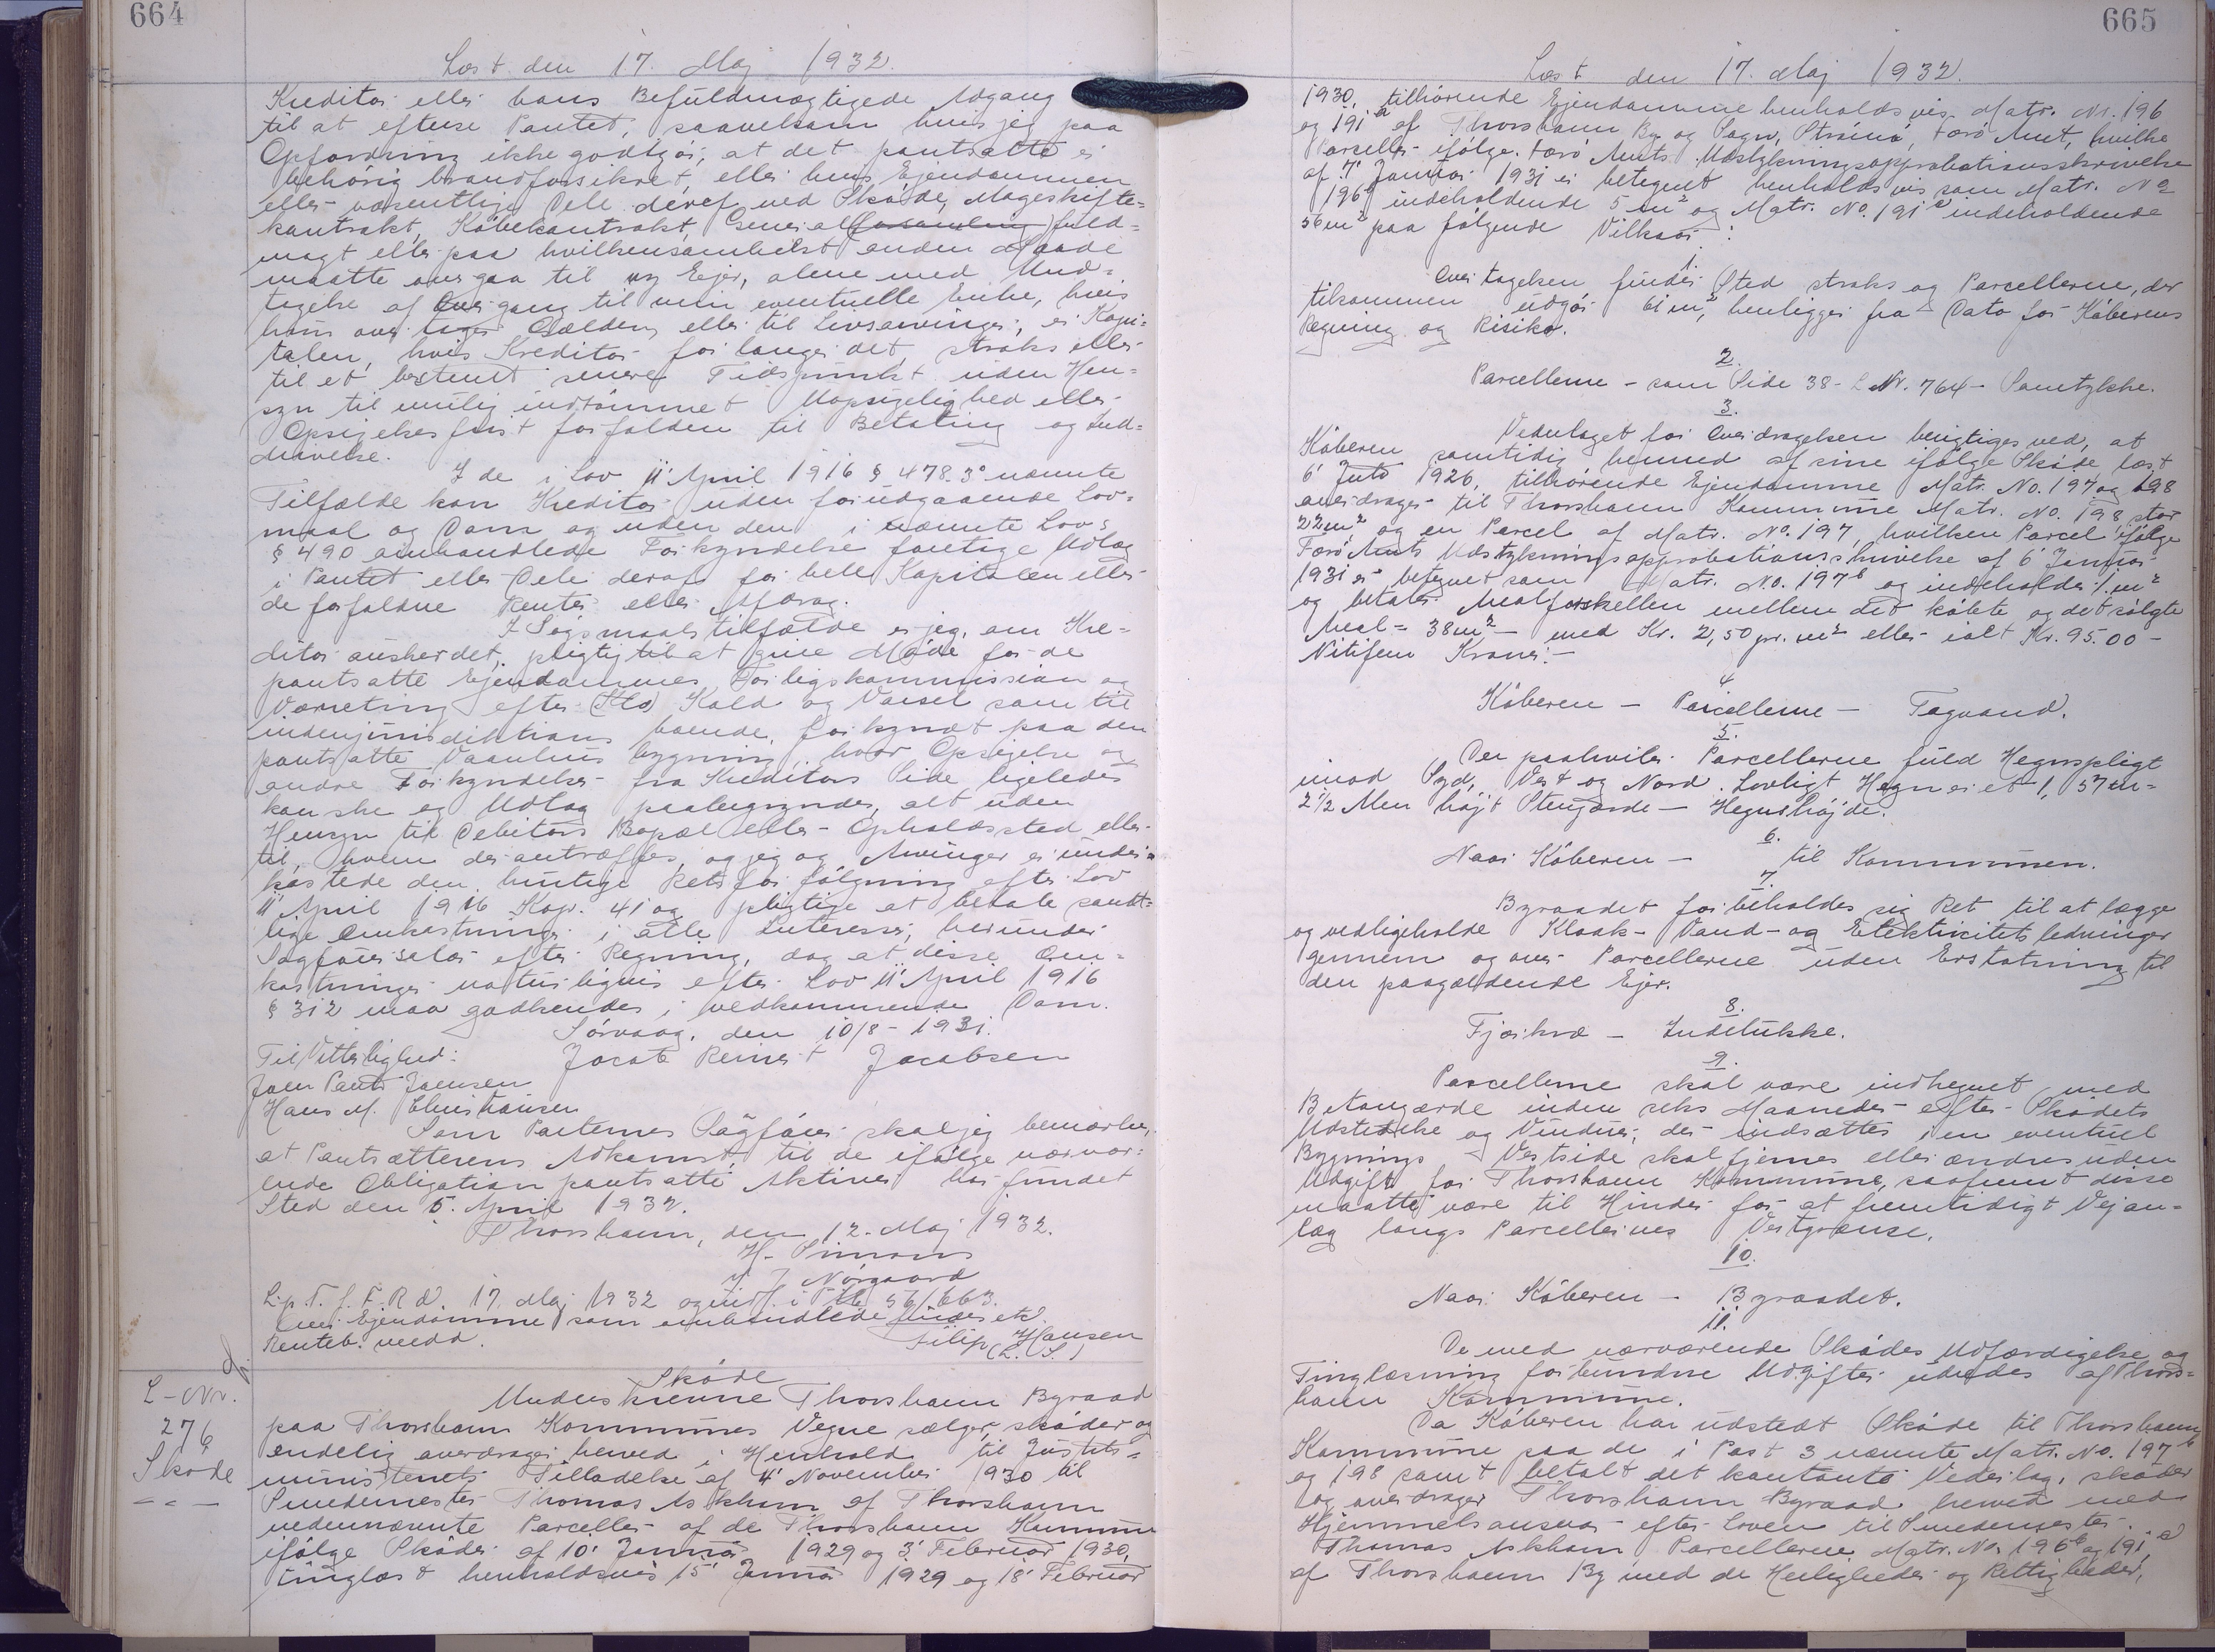 664
Læst den 17. Maj 1932.
Kreditor eller hans Befuldmægtigede Adgang
til at efterse Pantet, saavelsom hvis jeg paa
Opfordring ikke godtgør, at det pantsatte er
behørig brandforsikret, eller hvis Ejendommen
eller væsentlige Dele deraf ved Skøde, Mageskifte-
kontrakt, Købekontrakt, Generalforsamling fuld-
magt eller paa hvilkensomhelst anden Maade
maatte overgaa til ny Ejer, alene med Und-
tagelse af Overgang til min eventuelle Enke, hvis
hun overtager Gælden, eller til Livsarvinger, er Kapi-
talen, hvis Kreditor forlanger det, straks eller
til et bestemt senere Tidspunkt uden Hen-
syn til mulig indrømmet Uopsigelighed eller
Opsigelsesfrist forfalden til Betaling og Ind-
drivelse.
I de i Lov 11' April 1916 § 478. 3° nævnte
Tilfælde kan Kreditor uden forudgaaende Lov-
maal og Dom og uden den i nævnte Lovs
§ 490 omhandlede Forkyndelse foretage Udlæg
i Pantet eller Dele deraf for hele Kapitalen eller
de forfaldne Renter eller Afdrag.
I Søgsmaalstilfælde er jeg, om Kre-
ditor ønsker det, pligtig til at give Møde for de
pantsatte Ejendommes Forligskommission og
Værneting efter Kald og Varsel som til
indenjurisdiktions boende, forkyndt paa den
pantsatte Vaanhusbygning, hvor Opsigelse og
andre Forkyndelser fra Kreditors Side ligeledes
kan ske og Udlæg paabegyndes, alt uden
Hensyn til Debitors Bopæl eller Opholdssted eller
til, hvem der antræffes, og jeg og Arvinger er under-
kastede den hurtige Retsforfølgning efter Lov
11' April 1916 Kap. 41 og pligtige at betale samt-
lige Omkostninger i alle Interesser, herunder
Sagførersalær efter Regning, dog at disse Om-
kostninger naturligvis efter Lov 11' April 1916
§ 312 maa godkendes i vedkommende Dom.
Sørvaag, den 10/8 - 1931.
Til Vitterlighed: Jacob Reinert Jacobsen
Joen Pauli Joensen
Hans M. Christiansen
Som Parternes Sagfører skal jeg bemærke,
at Pantsætterens Adkomst til de ifølge nærvær-
ende Obligation pantsatte Aktiver har fundet
Sted den 5. April 1932.
Thorshavn, den 12. Maj 1932.
H. Simons
J. Nørgaard
L. p. T. f. F. R. d. 17. Maj 1932 og indf. i 56/663.
Ejendomme som omhandlede findes ek.
Renteb. vedd. Filip Hansen
(L. S.)
L-Nr.
276
Skøde
Skøde
Underskrevne Thorshavn Byraad
paa Thorshavn Kommunes Vegne sælger, skøder og
endelig overdrager herved i Henhold til Justits-
ministeriets Tilladelse af 4' November 1930 til
Smedemester Thomas Askham af Thorshavn
nedennævnte Parceller af de Thorshavn Kommune
ifølge Skøder af 10' Januar 1929 og 3' Februar 1930,
tinglæst henholdsvis 15' Januar 1929 og 18' Februar
665
Læst den 17. Maj 1932.
1930, tilhørende Ejendomme henholdsvis Matr. Nr. 196
og 191a af Thorshavn By og Sogn, Strømø, Færø Amt, hvilke
Parceller ifølge Færø Amts Udstykningsapprobationsskrivelse
af 7' Januar 1931 er betegnet henholdsvis som Matr. No
196b indeholdende 5 m2 og Matr. No. 191c indeholdende
56 m2 paa følgende Vilkaar:
1.
Overtagelsen finder Sted straks og Parcellerne, der
tilsammen udgør 61 m2, henligger fra Dato for Køberens
Regning og Risiko.
2.
Parcellerne - som Side 38 - L Nr. 764 - Samtykke.
3.
Vederlaget for Overdragelsen berigtiges ved, at
Køberen samtidig hermed af sine ifølge Skøde læst
6' Juli 1926, tilhørende Ejendomme Matr. No. 197 og 198
overdrager til Thorshavn Kommune Matr. No. 198 stor
22 m2 og en Parcel af Matr. No. 197, hvilken Parcel ifølge
Færø Amts Udstykningsapprobationsskrivelse af 6' Januar
1931 er betegnet som Matr. No. 197b og indeholder 1 m2
og betaler Arealforskellen mellem det købte og det solgte
Areal = 38 m2 - med Kr. 2,50 pr. m2 eller ialt Kr. 95.00 -
Nitifem Kroner. -
4
Køberen - Parcellerne - Tagvand.
5.
Der paahviler Parcellerne fuld Hegnspligt
imod Syd, Vest og Nord. Lovligt Hegn er et 1,57 m =
2 1/2 Alen højt Stengærde - Hegnshøjde.
6.
Naar Køberen - til Kommunen.
7.
Byraadet forbeholder sig Ret til at lægge
og vedligeholde Kloak- Vand- og Elektricitetsledninger
gennem og over Parcellerne uden Erstatning til
den paagældende Ejer.
8.
Fjerkræ - Indelukke.
9.
Parcellerne skal være indhegnet med
Betongærde inden seks Maaneder efter Skødets
Udstedelse og Vinduer, der indsættes i en eventuel
Bygnings Vestside skal fjernes eller ændres uden
Udgift for Thorshavn Kommune, saafremt disse
maatte være til Hinder for et fremtidigt Vejan-
læg langs Parcellernes Vestgrænse.
10.
Naar Køberen - Byraadet.
11.
De med nærværende Skødes Udfærdigelse og
Tinglæsning forbundne Udgifter udredes af Thors-
havn Kommune.
Da Køberen har udstedt Skøde til Thorshavn
Kommune paa de i Post 3 nævnte Matr. No. 197b
og 198 samt betalt det kontante Vederlag, skøder
og overdrager Thorshavn Byraad herved med
Hjemmelsansvar efter Loven til Smedemester
Thomas Askham Parcellerne Matr. No. 196b og 191c
af Thorshavn By med de Herligheder og Rettigheder,